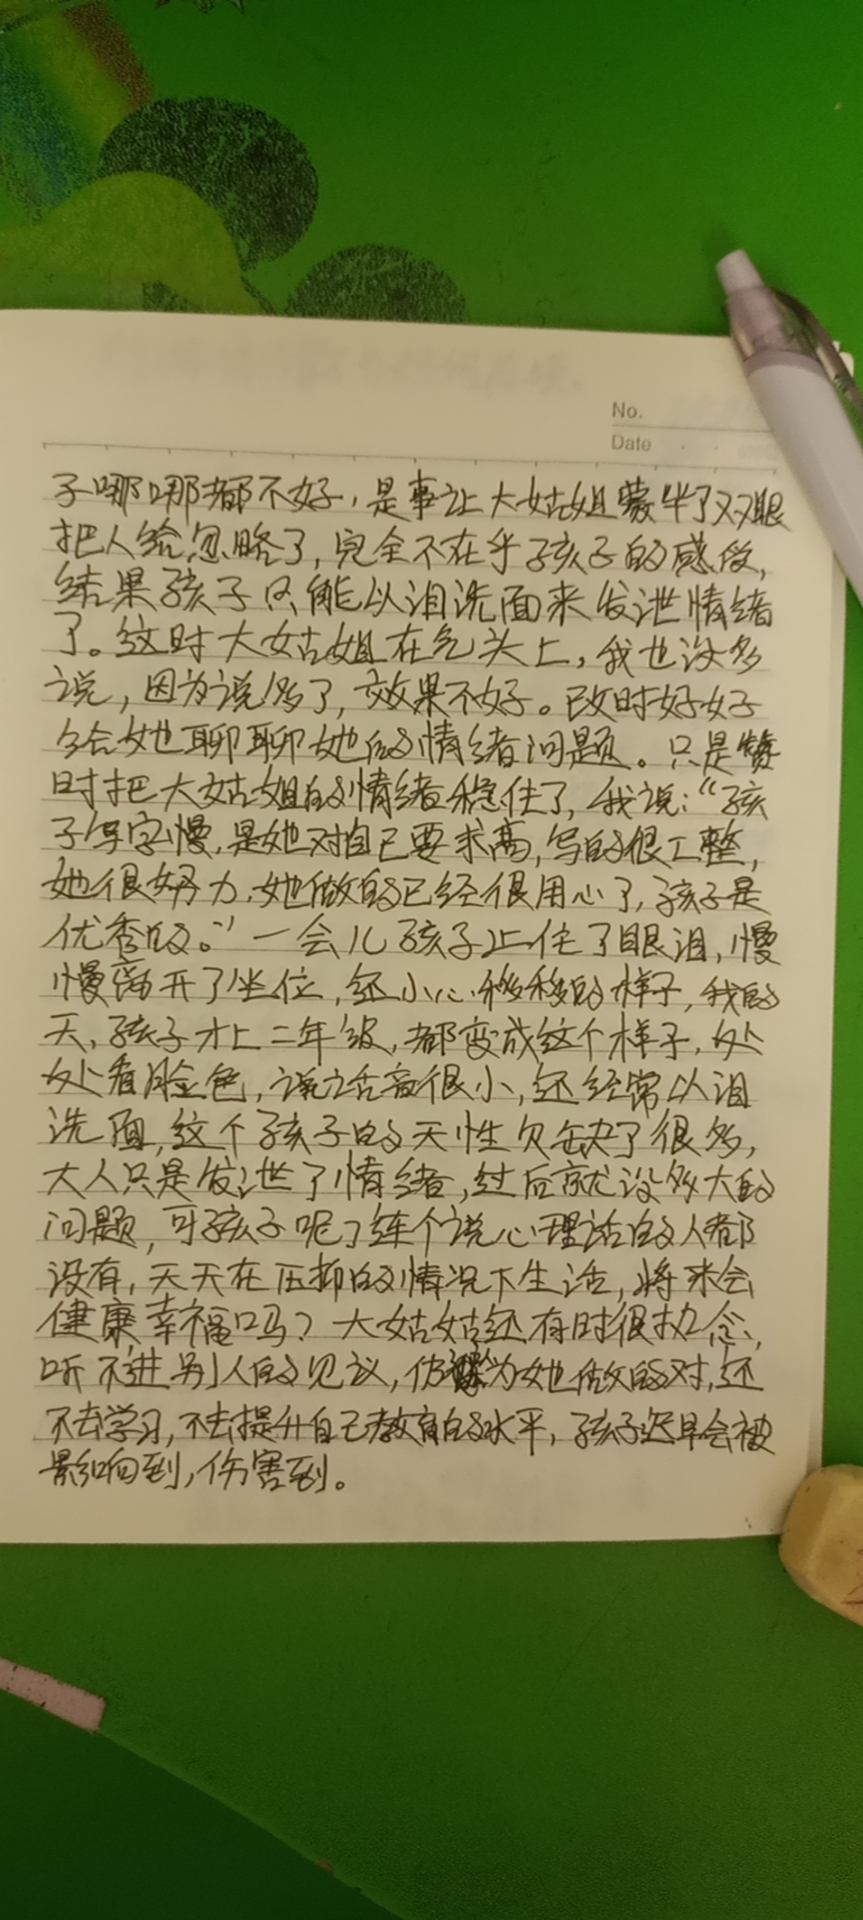 No.
Date
子哪哪都不好，是事让大姑姐蒙半了双眼
把人给忽略了，完全不在乎孩子的感受，
结果孩子只能以泪洗面来发泄情绪
了。这时大姑姐在气头上，我也没多
说，因为说多了，效果不好。改时好好
给她聊聊她的情绪问题。只是暂
时把大姑姐的情绪稳住了，我说：“孩
子写字慢，是她对自己要求高，写的很工整，
她很努力，她做的已经很用心了，孩子是
优秀的。”一会儿孩子止住了眼泪，慢
慢离开了坐位，还小心移移的样子，我的
天，孩子才上二年级，都变成这个样子，处
处看脸色，说话音很小，还经常以泪
洗面，这个孩子的天性欠缺了很多，
大人只是发泄了情绪，过后就没多大的
问题，可孩子呢？连个说心理话的人都
没有，天天在压抑的情况下生活，将来会
健康幸福吗？大姑姑还有时很执念，
听不进别人的见议，仿为她做的对，还
不去学习，不去提升自己教育的水平，孩子迟早会被
影响到，伤害到。